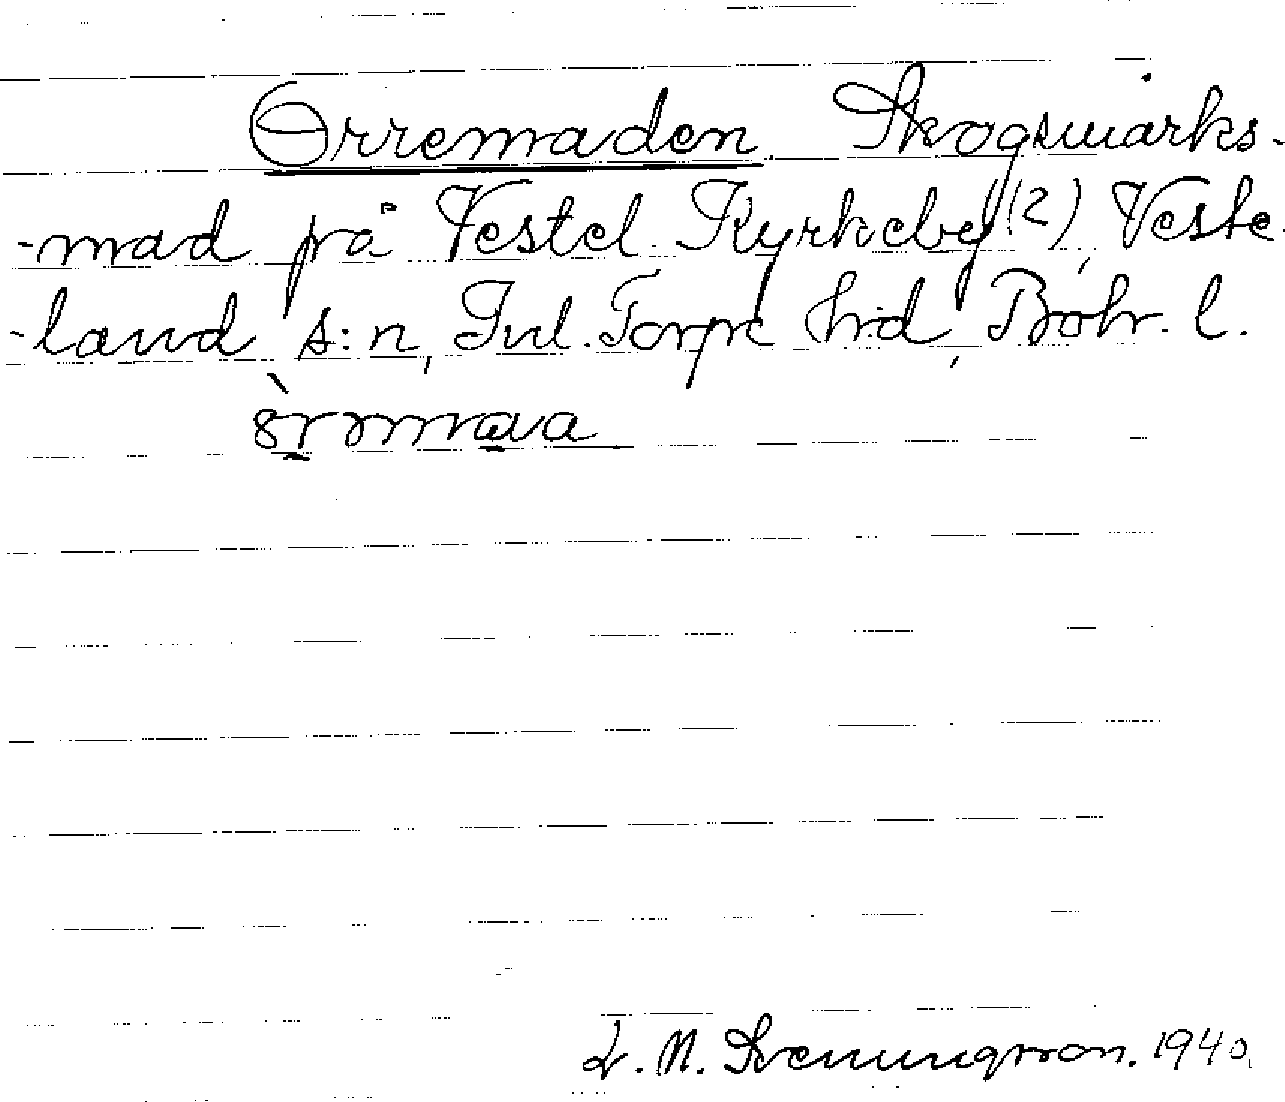 Orremaden Skogsmarks-
-mad på Vestel. Kyrkeby (2), Veste-
-land s:n, Inl. Torpe h:d, Boh. l.
L. N. Svenungsson. 1940.